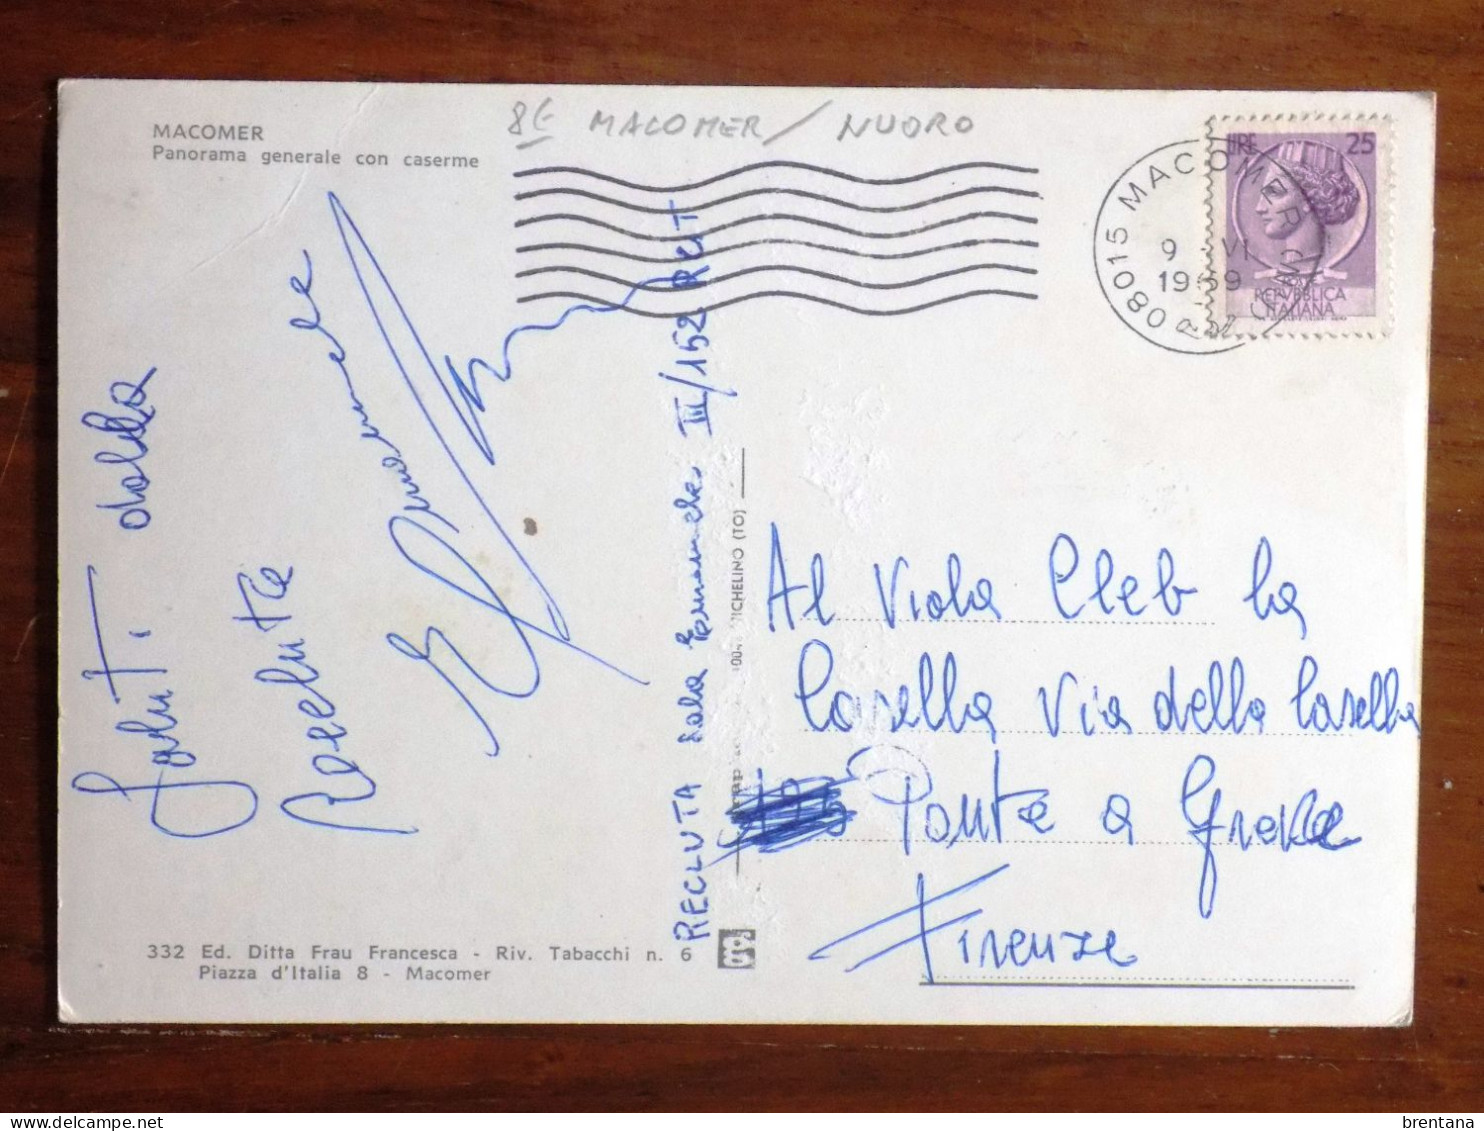 8€ MACOMER / NUORO
MACOMER
Panorama generale con caserme
LIRE 25
REPVBBLICA
ITALIANA
08015 MACOMER
9 VI
1969
Saluti dalla
Recluta
RECLUTA Sala Emanuele III/152 RGT
MICHELINO (TO)
Al Viola Cleb la
Casella Via della Casella
Ponte a Greve
Firenze
332 Ed. Ditta Frau Francesca - Riv. Tabacchi n. 6
Piazza d'Italia 8 - Macomer
brentana